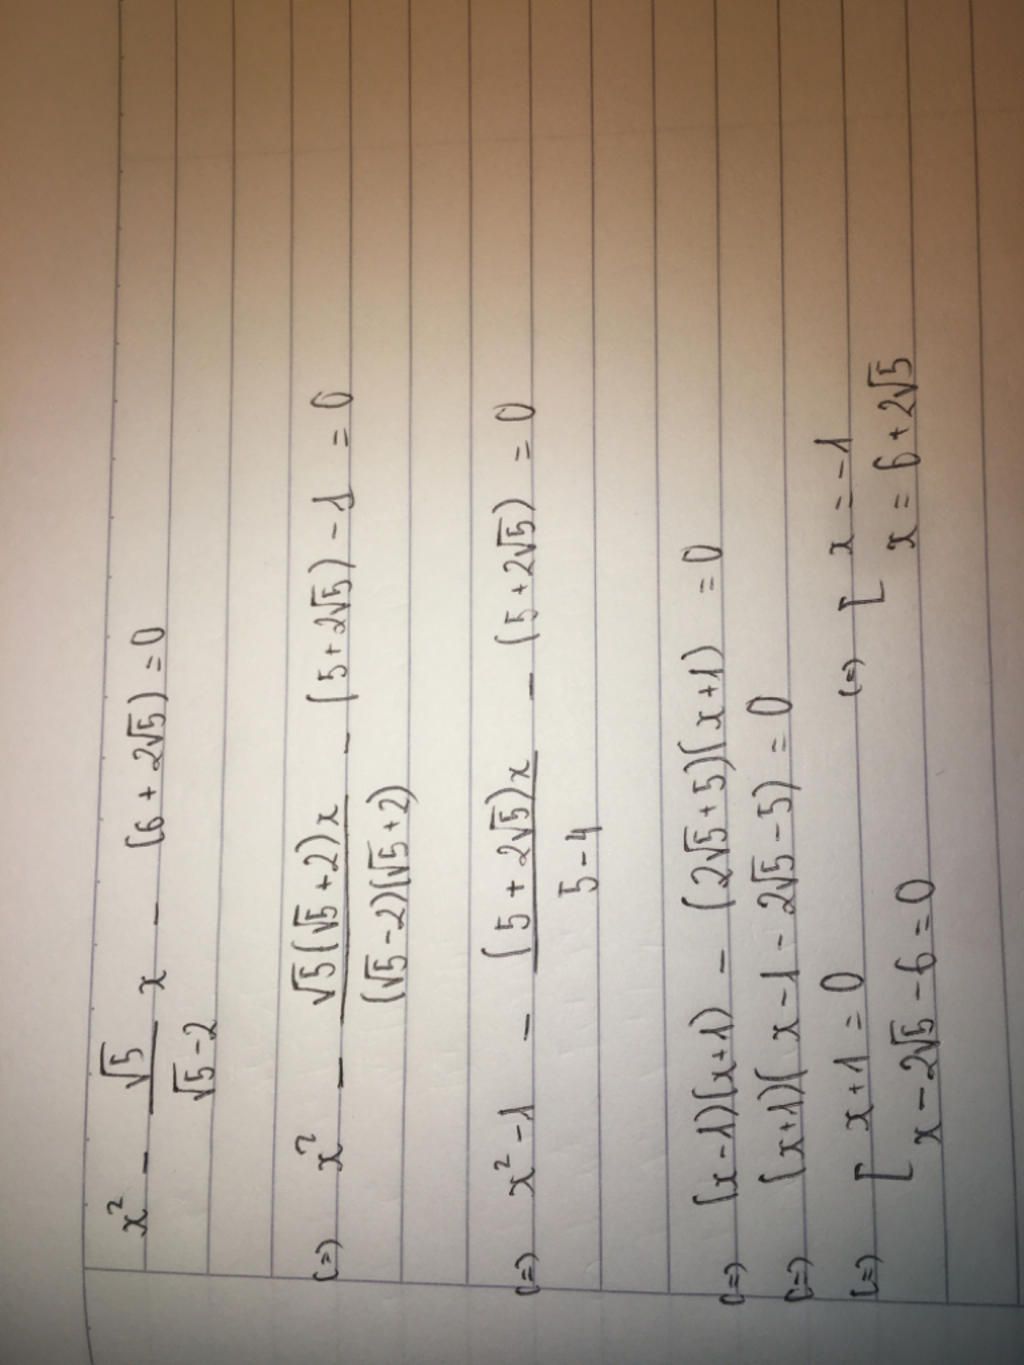 x² - √5/(√5-2) x - (6 + 2√5) = 0
(=) x² - √5(√5+2)x/((√5-2)(√5+2)) - (5+2√5) - 1 = 0
(=) x² - 1 - (5 + 2√5)x/(5-4) - (5 + 2√5) = 0
(=) (x-1)(x+1) - (2√5+5)(x+1) = 0
(=) (x+1)(x - 1 - 2√5 - 5) = 0
(=) [ x+1 = 0 (=) [ x = -1
x - 2√5 - 6 = 0 x = 6 + 2√5